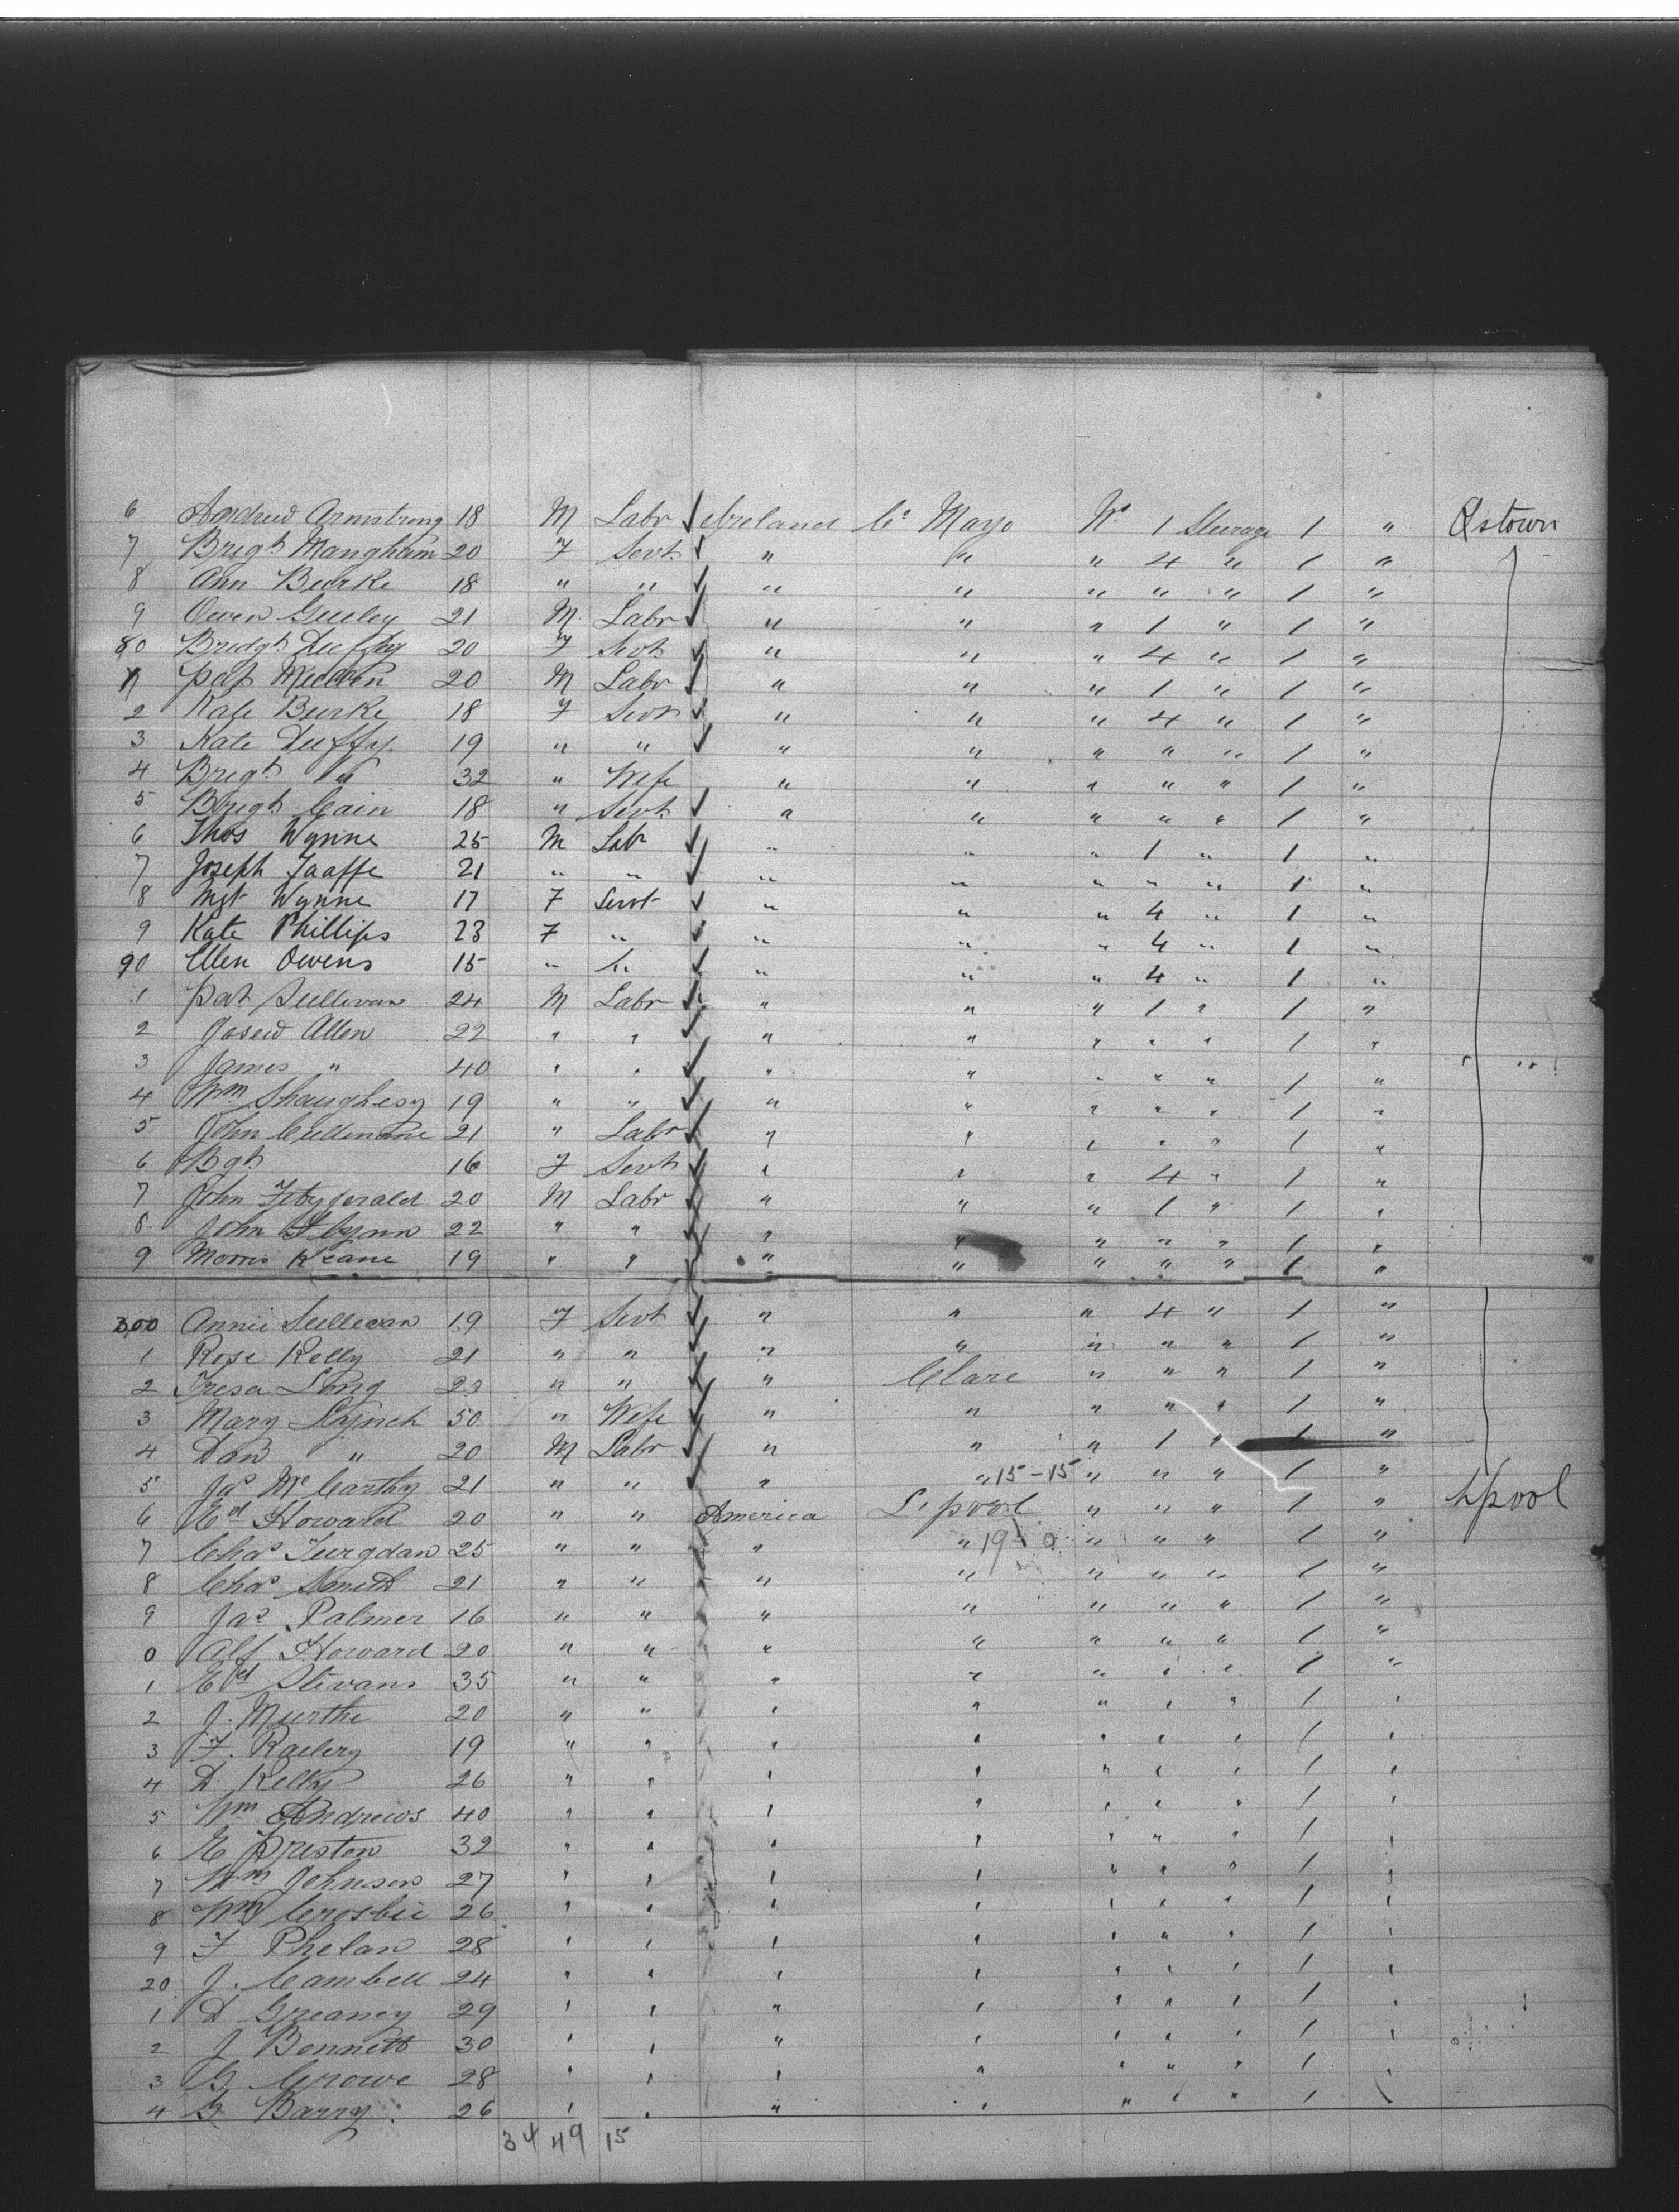 6 Andrew Armstrong 18 M Labr ✓ Ireland Co Mayo No 1 Steerage 1 " Qstown
7 Brigt Mangham 20 F Servt ✓ " " " 4 " 1 "
8 Ann Burke 18 " " ✓ " " " " " 1 "
9 Owen 21 M Labr ✓ " " " 1 " 1 "
80 Bridgt Duffy 20 F Servt ✓ " " " 4 " 1 "
1 Pat 20 M Labr ✓ " " " 1 " 1 "
2 Kate Burke 18 F Servt ✓ " " " 4 " 1 "
3 Kate Duffy 19 " " ✓ " " " " " 1 "
4 Brigt " 32 " Wife " " " " " 1 "
5 Brigt Cain 18 " Servt ✓ " " " " " 1 "
6 Thos Wynne 25 M Labr ✓ " " " 1 " 1 "
7 Joseph Taaffe 21 " " ✓ " " " " " 1 "
8 Mgt Wynne 17 F Servt ✓ " " " 4 " 1 "
9 Kate Phillips 23 F " ✓ " " " 4 " 1 "
90 Ellen Owens 15 " " ✓ " " " 4 " 1 "
1 Pat Sullivan 24 M Labr ✓ " " " 1 " 1 "
2 Allen 22 " " ✓ " " " " " 1 "
3 James " 40 " " ✓ " " " " " 1 "
4 Wm Shaughesy 19 " " ✓ " " " " " 1 "
5 John Cullinane 21 " Labr ✓ " " " " " 1 "
6 Bgt 16 F Servt ✓ " " " 4 " 1 "
7 John Fitzgerald 20 M Labr ✓ " " " 1 " 1 "
8 John Flynn 22 " " ✓ " " " " " 1 "
9 Morris Keane 19 " " ✓ " " " " " 1 "
300 Annie Sullivan 19 F Servt ✓ " " " 4 " 1 "
1 Rose Kelly 21 " " ✓ " " " " " 1 "
2 Tresa Long 23 " " ✓ " Clare " " " 1 "
3 Mary Lynch 50 " Wife ✓ " " " " " 1 "
4 Dan " 20 M Labr ✓ " " " 1 " 1 "
5 Jas McCarthy 21 " " ✓ " " 15-15 " " " 1 "
6 Ed Howard 20 " " America L'pool " " " 1 " Lpool
7 Chas 25 " " " " 19 " " " 1 "
8 Chas Smith 21 " " " " " " " 1 "
9 Jas Palmer 16 " " " " " " " 1 "
0 Alf Howard 20 " " " " " " " 1 "
1 Ed Stevans 35 " " " " " " " 1 "
2 J. Murthe 20 " " " " " " " 1 "
3 F. 19 " " " " " " " 1 "
4 D Kelly 26 " " " " " " " 1 "
5 Wm Andrews 40 " " " " " " " 1 "
6 E Preston 32 " " " " " " " 1 "
7 Wm Johnson 27 " " " " " " " 1 "
8 Wm Crosbie 26 " " " " " " " 1 "
9 F Phelan 28 " " " " " " " 1 "
20 J. Cambell 24 " " " " " " " 1 "
1 D Greaney 29 " " " " " " " 1 "
2 J Bennett 30 " " " " " " " 1 "
3 G Crowe 28 " " " " " " " 1 "
4 G Barry 26 " " " " " " " 1 "
34 49 15